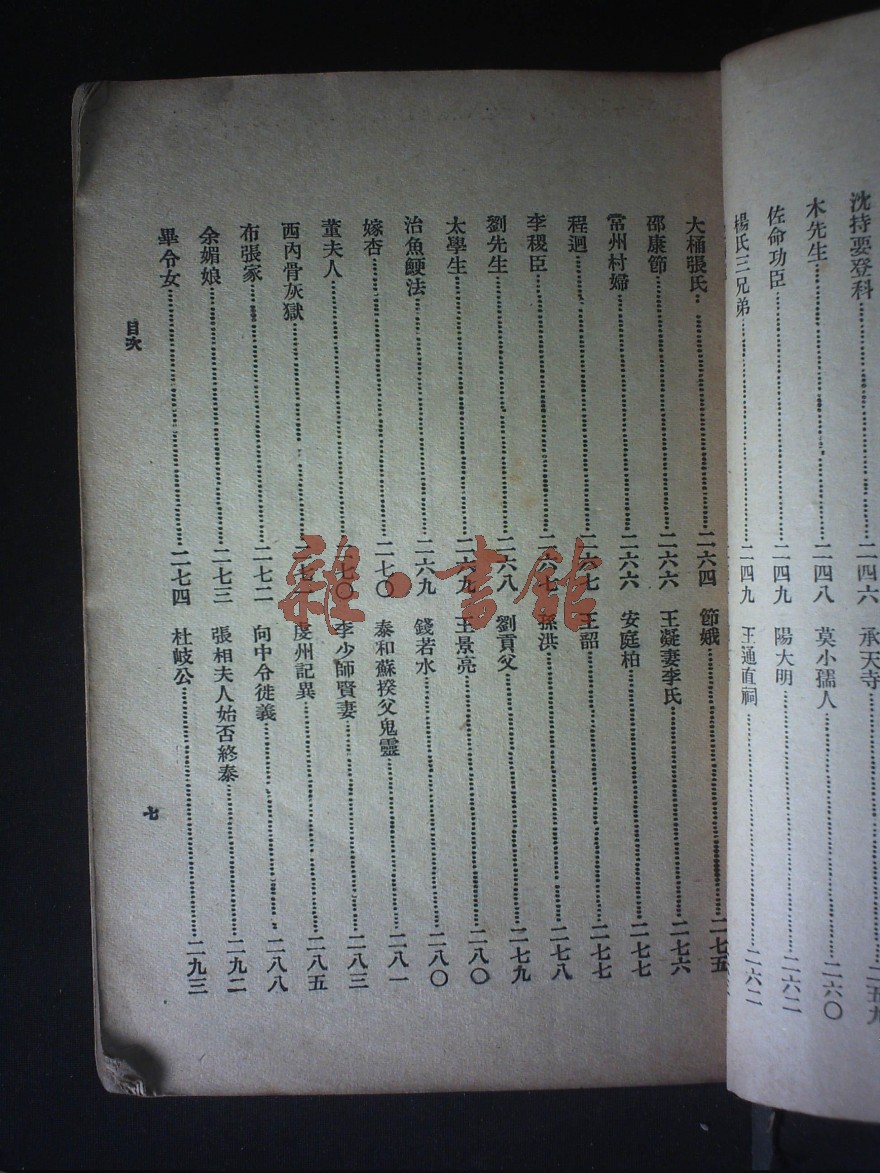 沈持要登科……二四六
木先生……二四八
佐命功臣……二四九
楊氏三兄弟……二四九
承天寺……二五九
莫小孺人……二六〇
陽大明……二六二
王通直祠……二六二
大桶張氏……二六四
邵康節……二六六
常州村婦……二六六
程迥……二六七
李稷臣……二六七
劉先生……二六八
太學生……二六九
治魚鯁法……二六九
嫁杏……二七〇
董夫人……二七〇
西內骨灰獄……二七一
布張家……二七二
余媚娘……二七三
畢令女……二七四
節娥……二七五
王凝妻李氏……二七六
安庭柏……二七七
王韶……二七七
孫洪……二七八
劉貢父……二七九
王景亮……二八〇
錢若水……二八〇
泰和蘇揆父鬼靈……二八一
李少師賢妻……二八三
虔州記異……二八五
向中令徙義……二八八
張相夫人始否終泰……二九二
杜岐公……二九三
目次
七
雜·書館